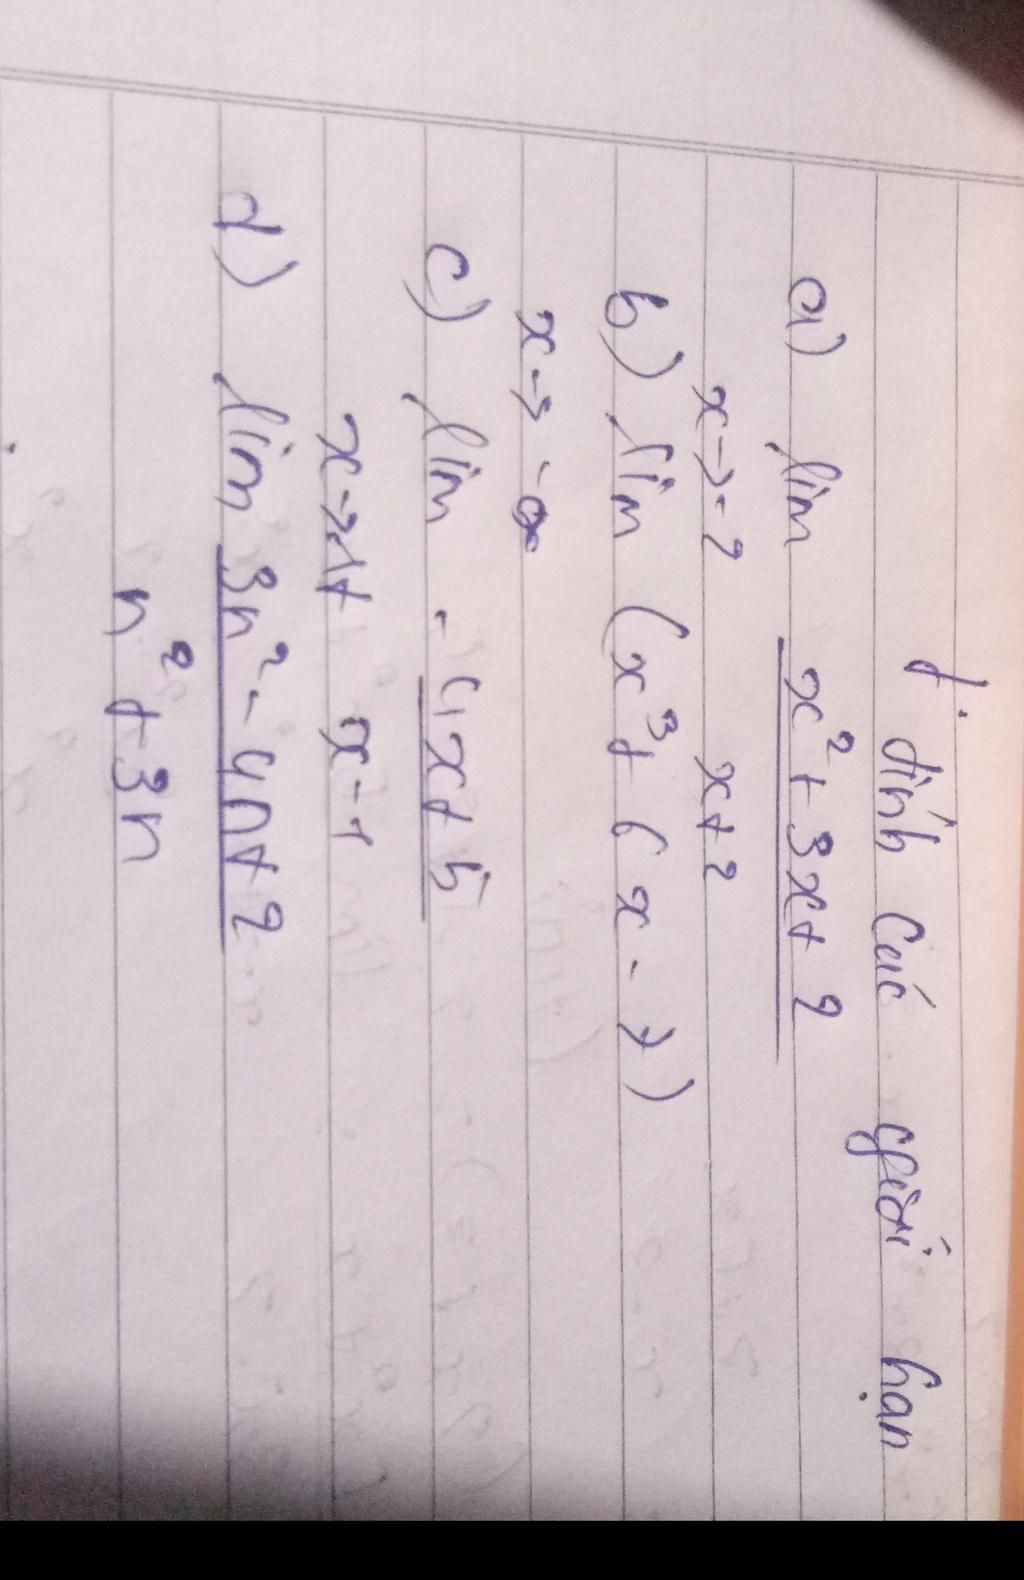 1. tính các giới hạn
a) lim x² + 3x + 2
x → -2 x + 2
b) lim (x³ + 6x - 7)
x → -∞
c) lim -4x + 5
x → 1+ x - 1
d) lim 3n² - 4n + 2
n² + 3n